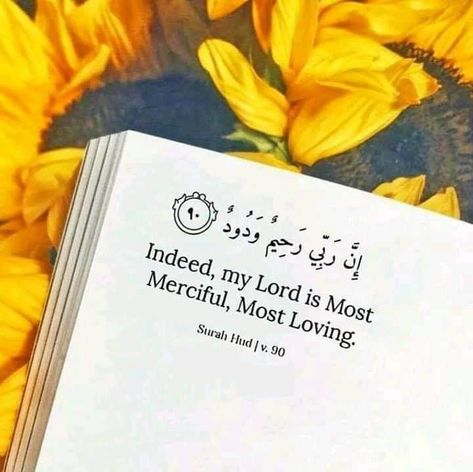 إِنَّ رَبِّي رَحِيمٌ وَدُودٌ ٩٠
Indeed, my Lord is Most
Merciful, Most Loving.
Surah Hud | v. 90